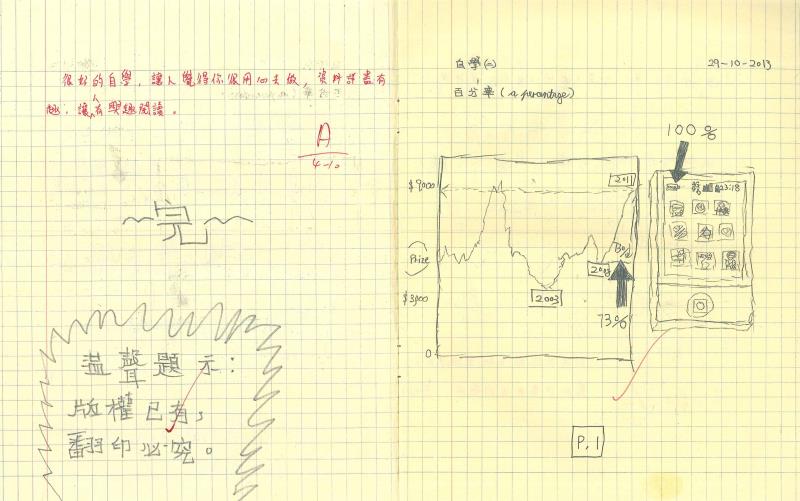 很好的自學，讓人覺得你很用心去做，資料詳盡有
趣，讓人有興趣閱讀。
A
4-10
~完~
温聲題示：
版權已有，
翻印必究。
自學(二) 29-10-2013
百分率 (a percantage)
100%
$9000
2011
23:18
Prize
2008
$3000
2003
73%
0
P.1